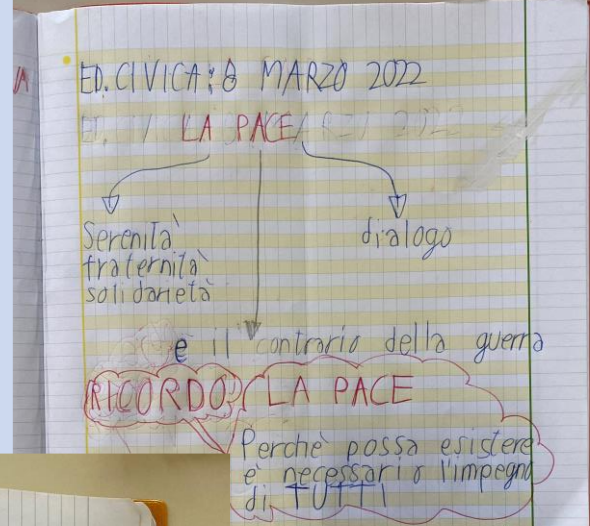 ED. CIVICA: 8 MARZO 2022
LA PACE
Serenità
fraternità
solidarietà
dialogo
è il contrario della guerra
RICORDO LA PACE
Perchè possa esistere
è necessario l'impegno
di TUTTI